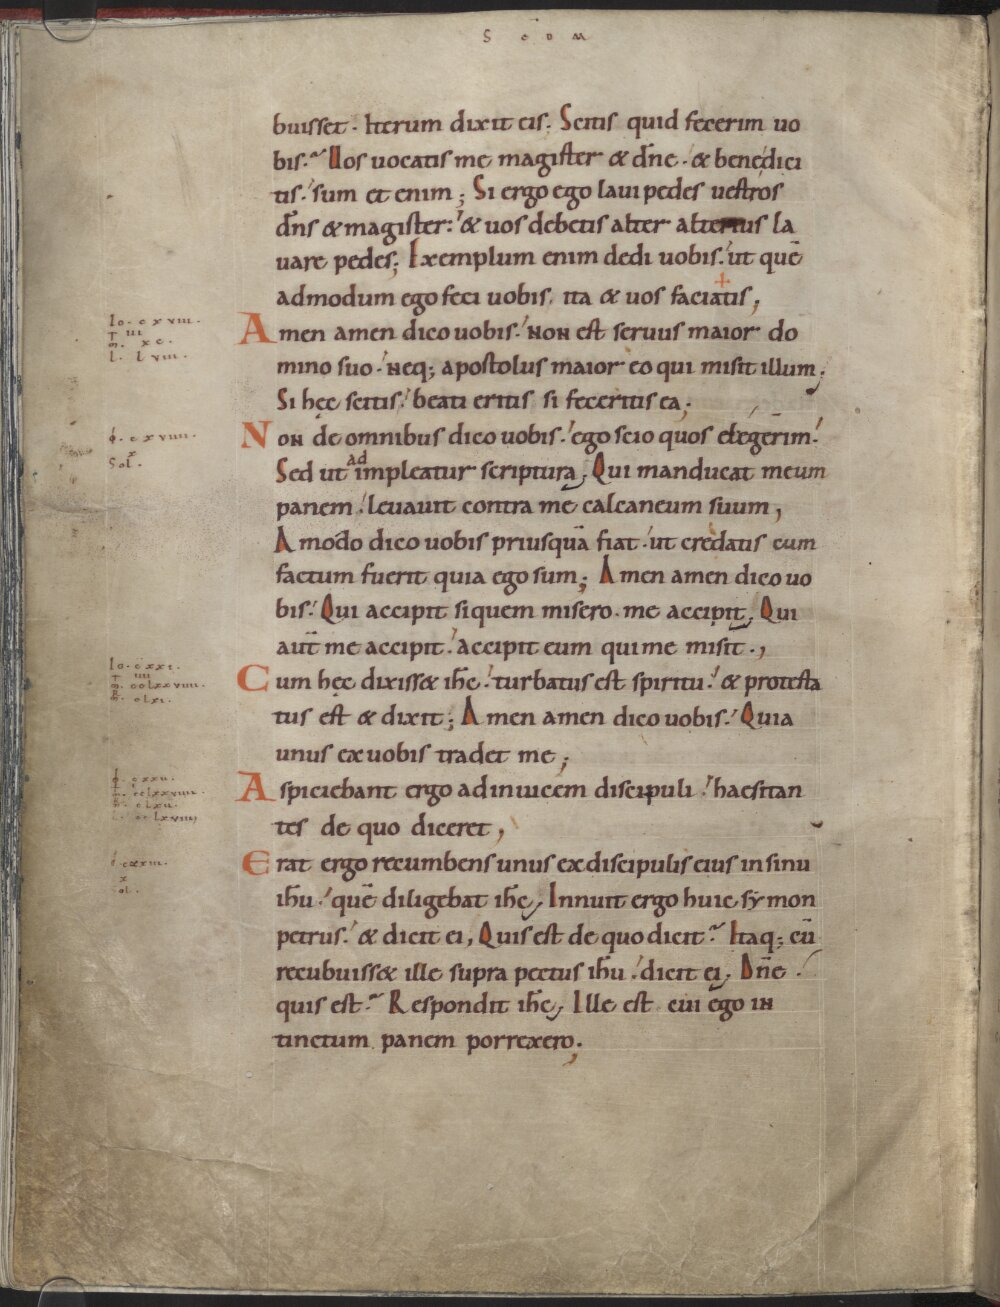 S C D M
buisset. Iterum dixit eis. Scitis quid fecerim uo
bis. Uos uocatis me magister & dn̄e. & benedici
tis. sum et enim; Si ergo ego laui pedes uestros
dn̄s & magister. & uos debetis alter alterius la
uare pedes; Exemplum enim dedi uobis. ut quē
admodum ego feci uobis. ita & uos faciatis;
Io. cxviii.
Amen amen dico uobis. Non est seruus maior do
m. xc.
mino suo. neq; apostolus maior eo qui misit illum;
l. lviii.
Si hęc scitis. beati eritis si feceritis ea;
cxviiii.
Non de omnibus dico uobis. ego scio quos elegerim.
x
Sol.
ad
Sed ut impleatur scriptura; Qui manducat meum
panem. leuauit contra me calcaneum suum;
A modo dico uobis priusquā fiat. ut credatis cum
factum fuerit quia ego sum; Amen amen dico uo
bis. Qui accipit siquem misero. me accipit; Qui
aut̄ me accipit. accipit eum qui me misit.,
Io. cxxi.
Cum hęc dixiss& ih̄c. turbatus est spiritu. & protesta
m. cclxxviiii.
clxi.
tus est & dixit; Amen amen dico uobis. Quia
unus ex uobis tradet me;
cxxii.
Aspiciebant ergo adinuicem discipuli. haesitan
cclxxviiii.
clxii.
cclxviiii
tes de quo diceret;
cxxiii.
Erat ergo recumbens unus ex discipulis eius in sinu
x
Sol.
ih̄u. quē diligebat ih̄c; Innuit ergo huic sẏmon
petrus. & dicit ei, Quis est de quo dicit. Itaq; cū
recubuiss& ille supra pectus ih̄u. dicit ei; Dn̄e.
quis est. Respondit ih̄c; Ille est cui ego in
tinctum panem porrexero.